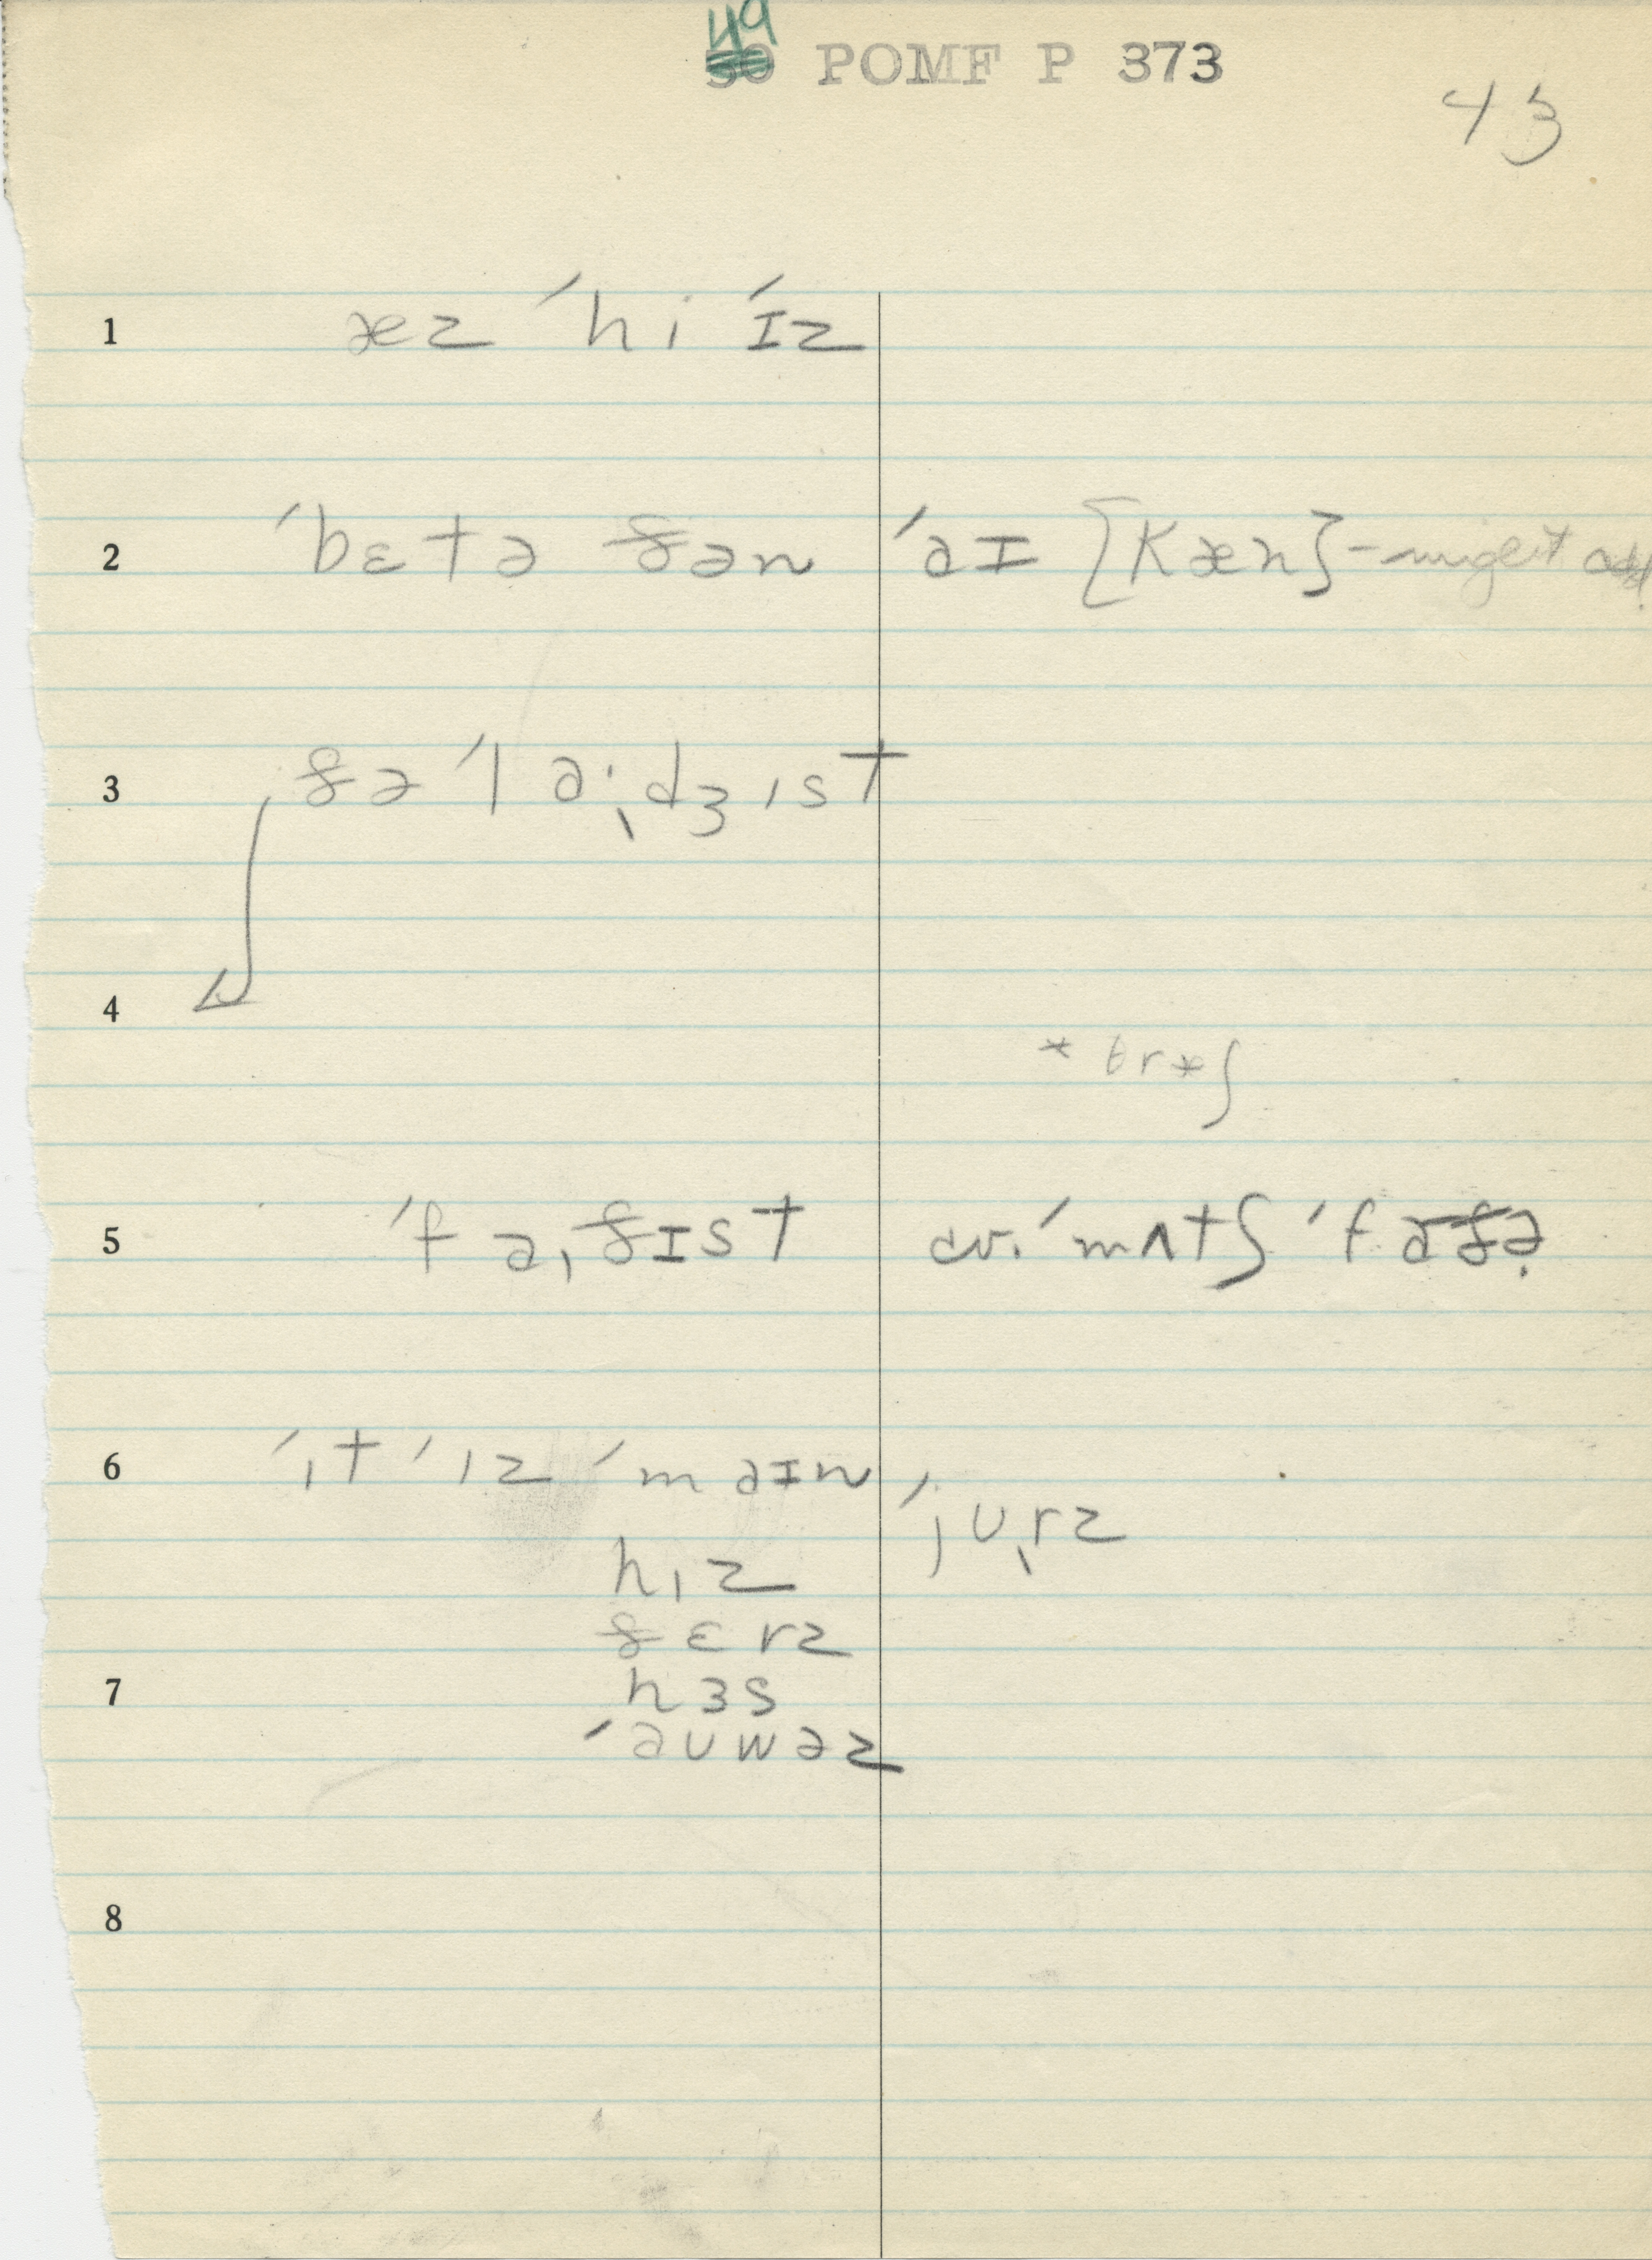 49
50 POMF P 373
43
1 æz ˈhi ˈɪz
2 ˈbɛtə ðən ˈaɪ [kæn] - might add
3 ðə ˈlaˑdʒɪst
4
* θræʃ
5 ˈfaˌðɪst av. ˈmʌtʃ ˈfaðə
6 ˈɪt ˈɪz ˈmaɪn ˈjuˌrz
hɪz
ðɛrz
7 hɜs
ˈauwəz
8